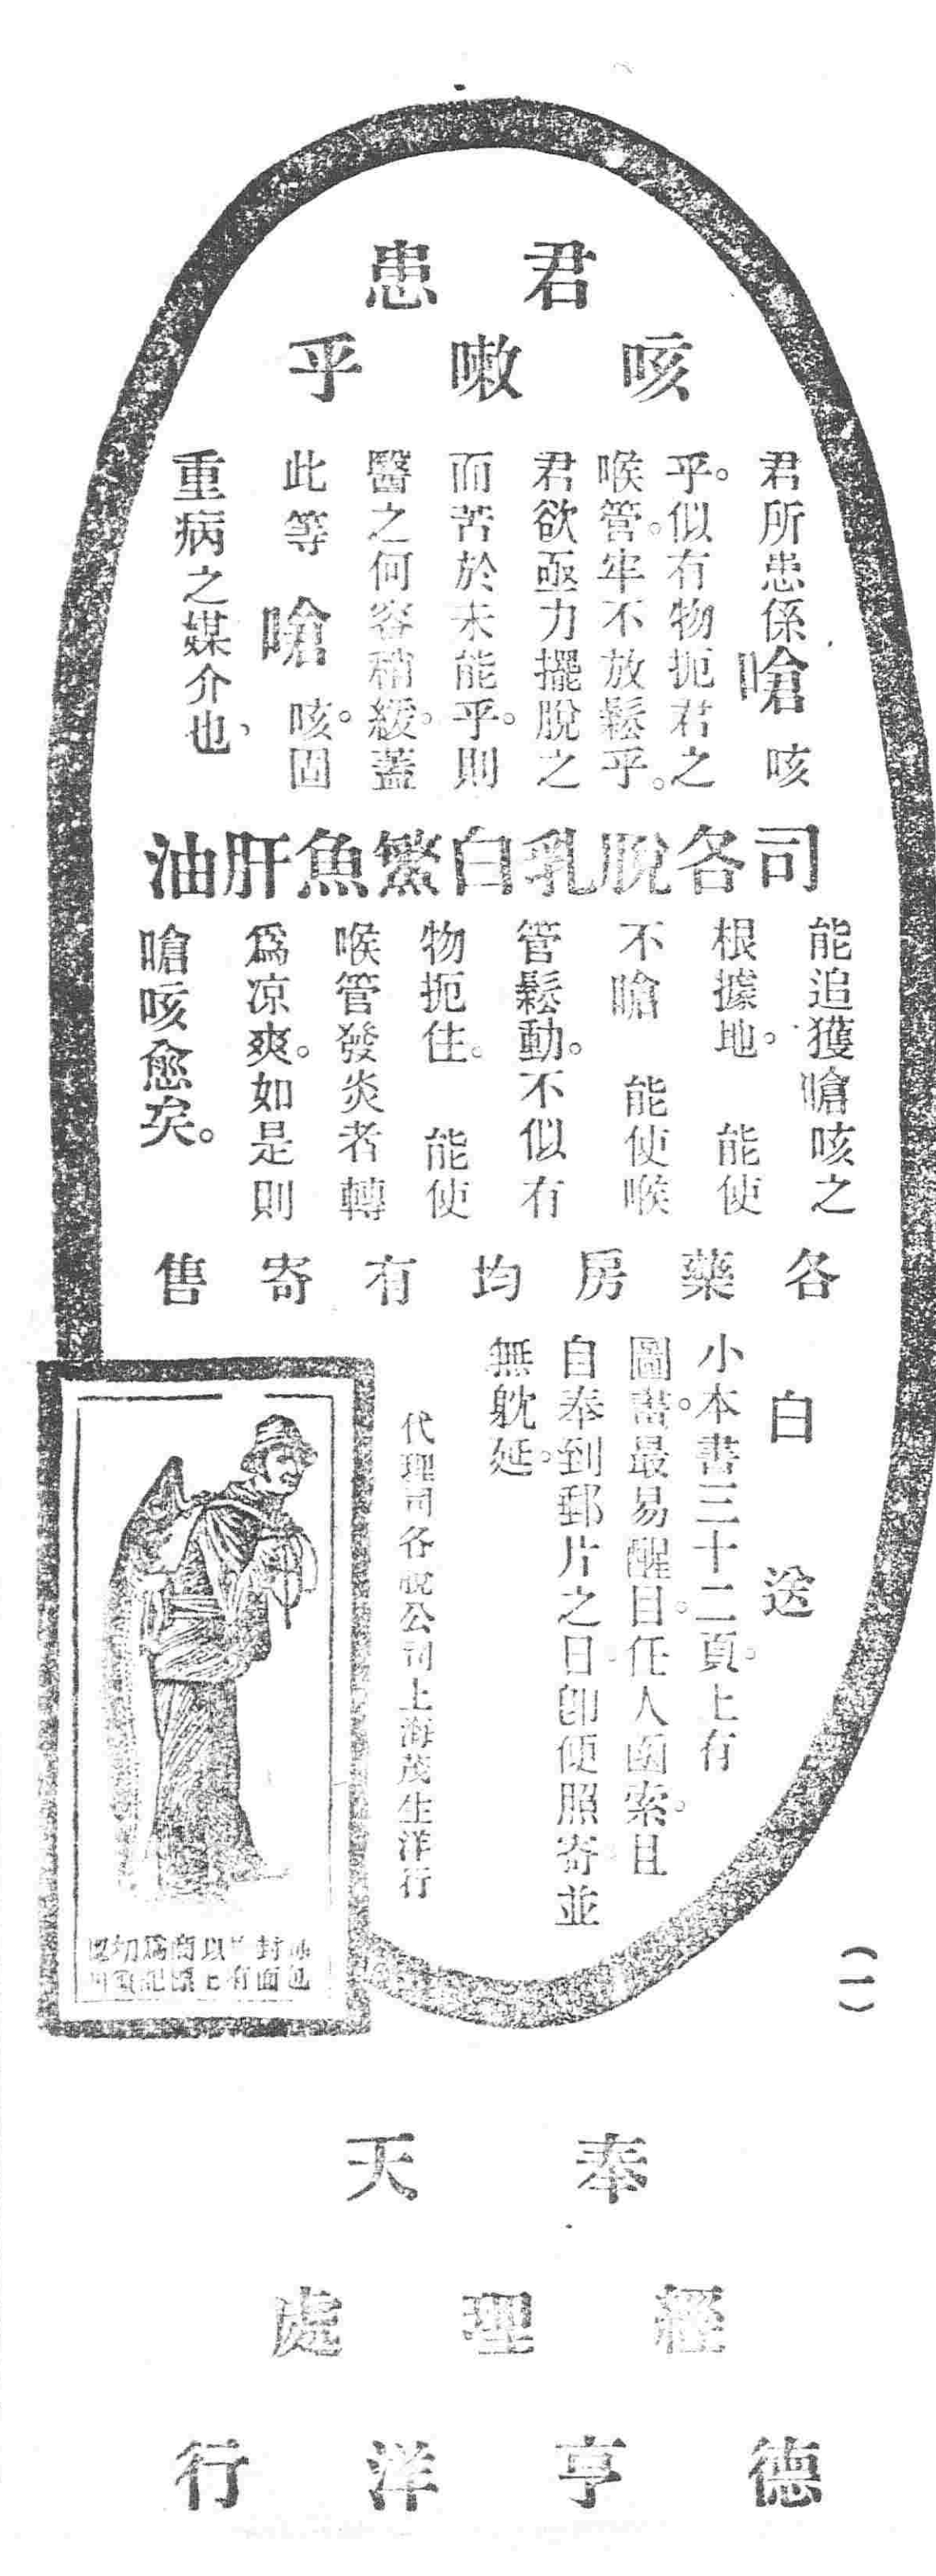 君患
咳嗽乎
君所患係嗆咳
乎。似有物扼君之
喉管。牢不放鬆乎。
君欲亟力擺脫之
而苦於未能乎。則
醫之何容稍緩。蓋
此等嗆咳。固
重病之媒介也、
司各脫乳白鰵魚肝油
能追獲嗆咳之
根據地。能使
不嗆 能使喉
管鬆動。不似有
物扼住。能使
喉管發炎者轉
爲凉爽。如是則
嗆咳愈矣。
各藥房均有寄售
白送
小本書三十二頁。上有
圖畫。最易醒目。任人函索。且
自奉到郵片之日。卽便照寄。並
無躭延。
代理司各脫公司上海茂生洋行
封 以商爲切
面有
(一)
奉天
經理處
德亨洋行